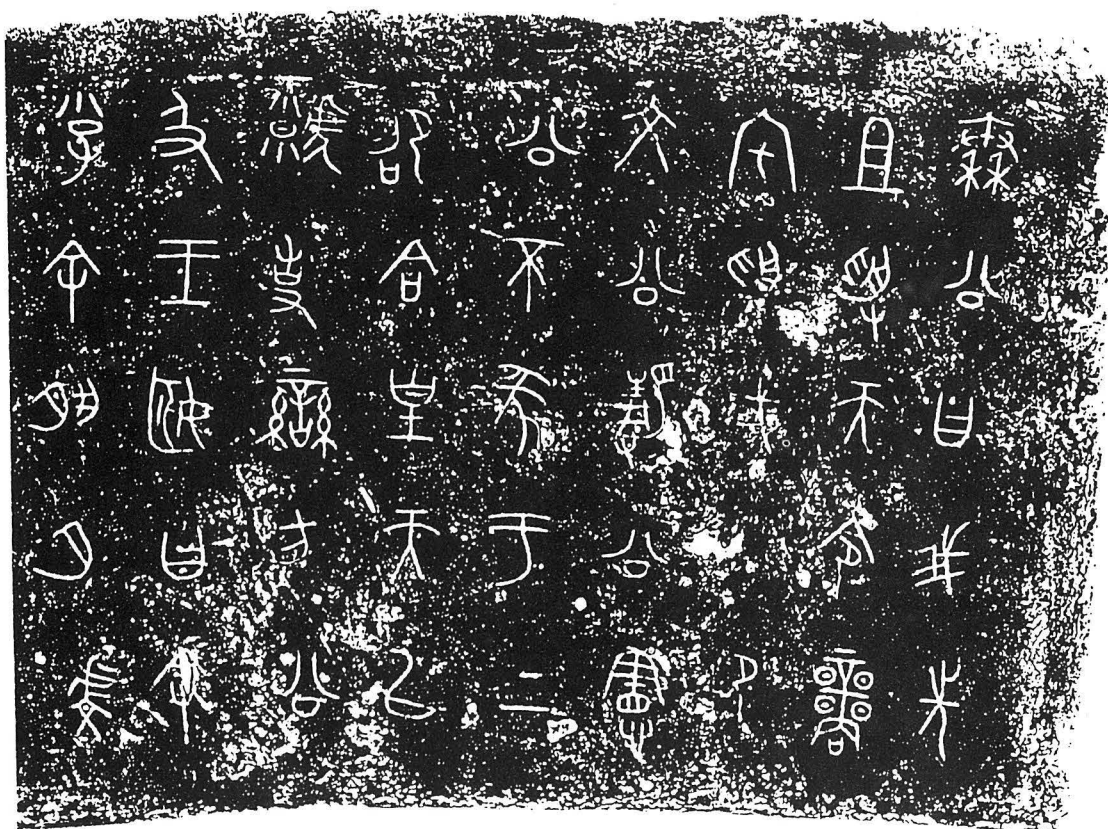 秦公曰我先
且受天令商
宅受或卲
文公靜公憲
公不彖于上
卲合皇天以
虩事蠻方公
及王姬曰余
小子余夙夕虔